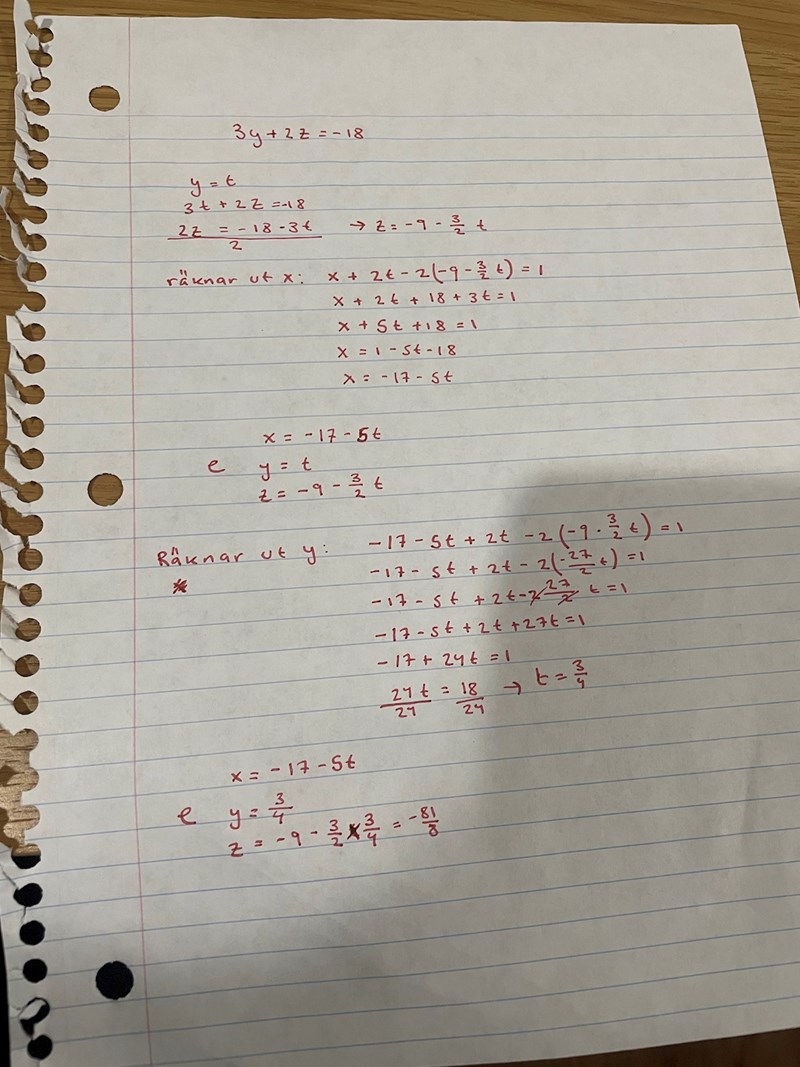 3y + 2z = -18
y = t
3t + 2z = -18
2z = -18 - 3t → z = -9 - 3/2 t
2
räknar ut x: x + 2t - 2(-9 - 3/2 t) = 1
x + 2t + 18 + 3t = 1
x + 5t + 18 = 1
x = 1 - 5t - 18
x = -17 - 5t
x = -17 - 5t
e y = t
z = -9 - 3/2 t
Räknar ut y: -17 - 5t + 2t - 2(-9 · 3/2 t) = 1
-17 - 5t + 2t - 2(-27/2 t) = 1
-17 - 5t + 2t - 2 27/2 t = 1
-17 - 5t + 2t + 27t = 1
-17 + 24t = 1
24t/24 = 18/24 → t = 3/4
x = -17 - 5t
e y = 3/4
z = -9 - 3/2 × 3/4 = -81/8